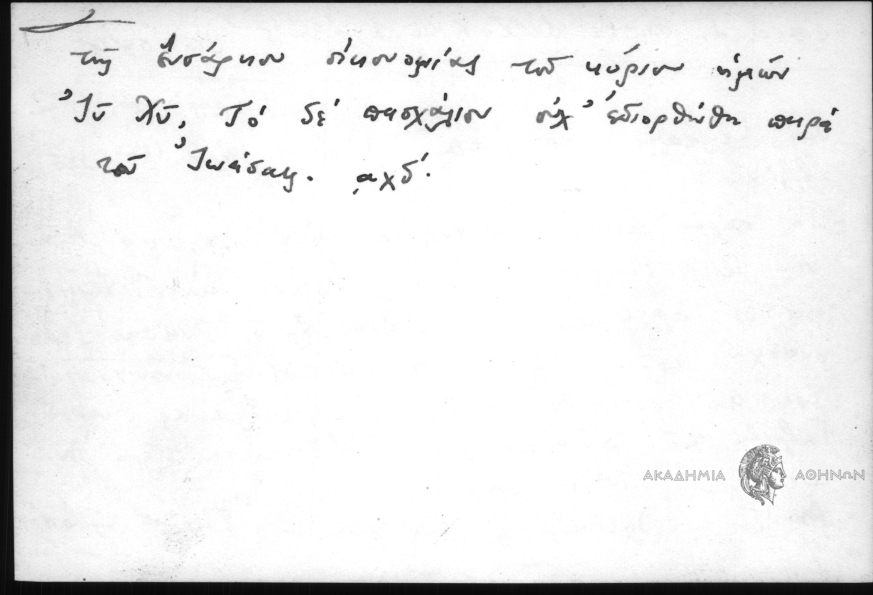 τῆς ἐνσάρκου οἰκονομίας τοῦ κυρίου ἡμῶν
Ἰῦ Χῦ, Τό δέ πασχάλιον οὐχ' ἐδιορθώθη παρὰ
τοῦ Ἰωάσαφ. ͵αχδ´.
ΑΚΑΔΗΜΙΑ ΑΘΗΝΩΝ